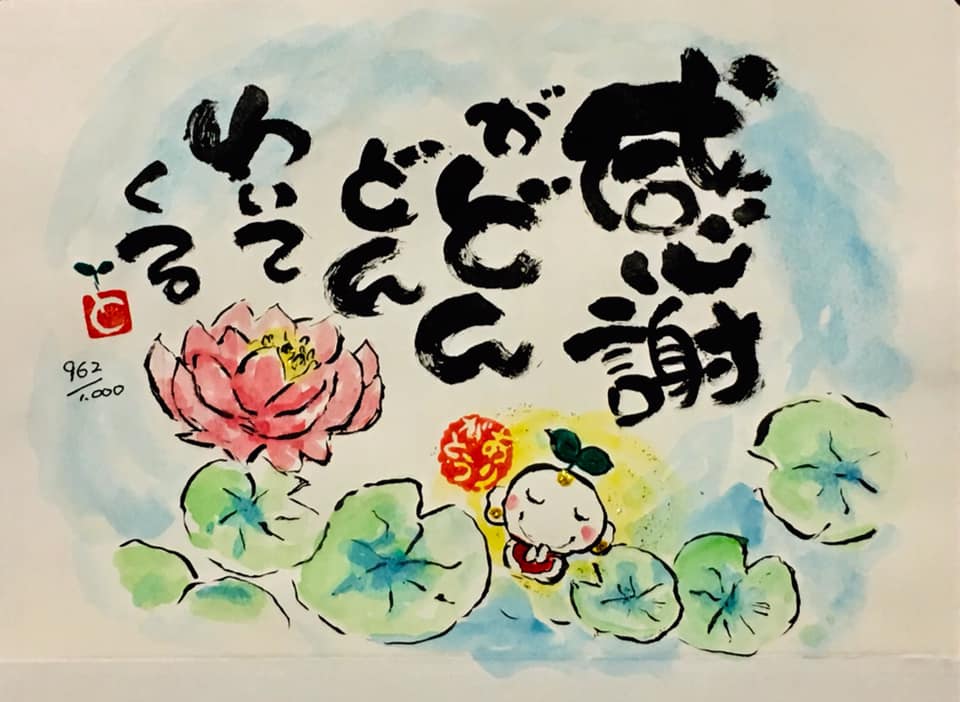 感謝
が
どん
どん
わいて
くる
ありがとう
と
962/1.000